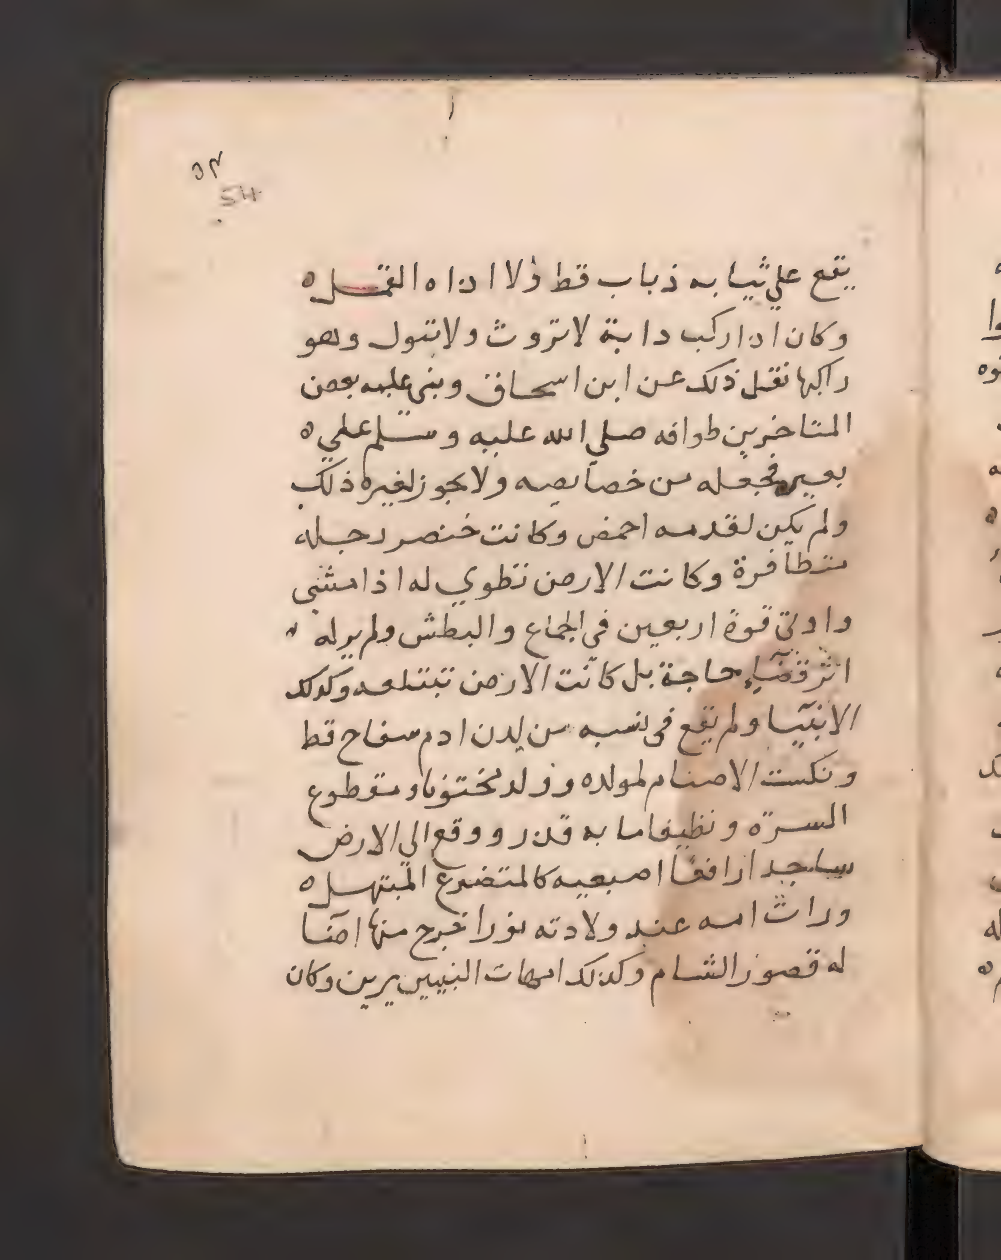 ٥٤
54
يقع علي ثيابه ذباب قط ولا اذاه القمل ه
وكان اذا ركب دابة لا تروث ولا تبول وهو
راكبها نقل ذلك عن ابن اسحاق وبنى عليه بعض
المتاخرين طوافه صلي الله عليه وسلم علي ه
بعيره فجعله من خصايصه ولا يجوز لغيره ذلك
ولم يكن لقدمه اخمص وكانت خنصر رجله
متظافرة وكانت الارض تطوي له اذا مشى
واوتي قوة اربعين في الجماع والبطش ولم ير له
اثر قضآء حاجة بل كانت الارض تبتلعه وكذلك
الانبيآ ولم يقع في نسبه من لدن ادم سفاح قط
ونكست الاصنام لمولده وولد مختونا ومقطوع
السرة ونظيفا ما به قذر ووقع الي الارض
ساجدا رافعا اصبعيه كالمتضرع المبتهل ه
ورات امه عند ولادته نورا خرج منها اضآ
له قصور الشام وكذلك امهات النبيين يرين وكان